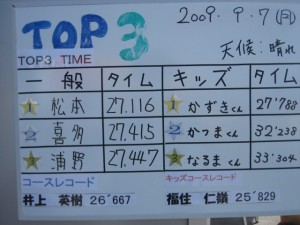 TOP 3
2009. 9. 7 (月)
天候:晴れ
TOP3 TIME
一般 タイム キッズ タイム
1 松本 27.116 1 かずきくん 27'788
2 喜多 27.415 2 かつまくん 32'238
3 浦野 27.447 3 なるまくん 33'304
コースレコード キッズコースレコード
井上 英樹 26'667 福住 仁嶺 25'829